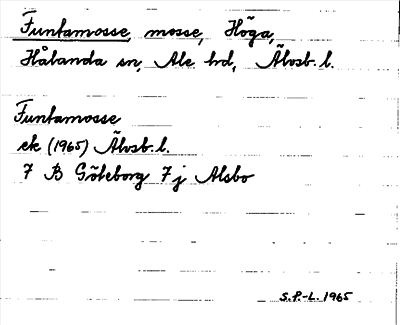 Funtamosse, mosse, Höga,
Hålanda sn, Ale hd, Älvsb. l.
Funtamosse
ek (1965) Älvsb. l.
7 B Göteborg 7 j Alsbo
S.P.-L. 1965